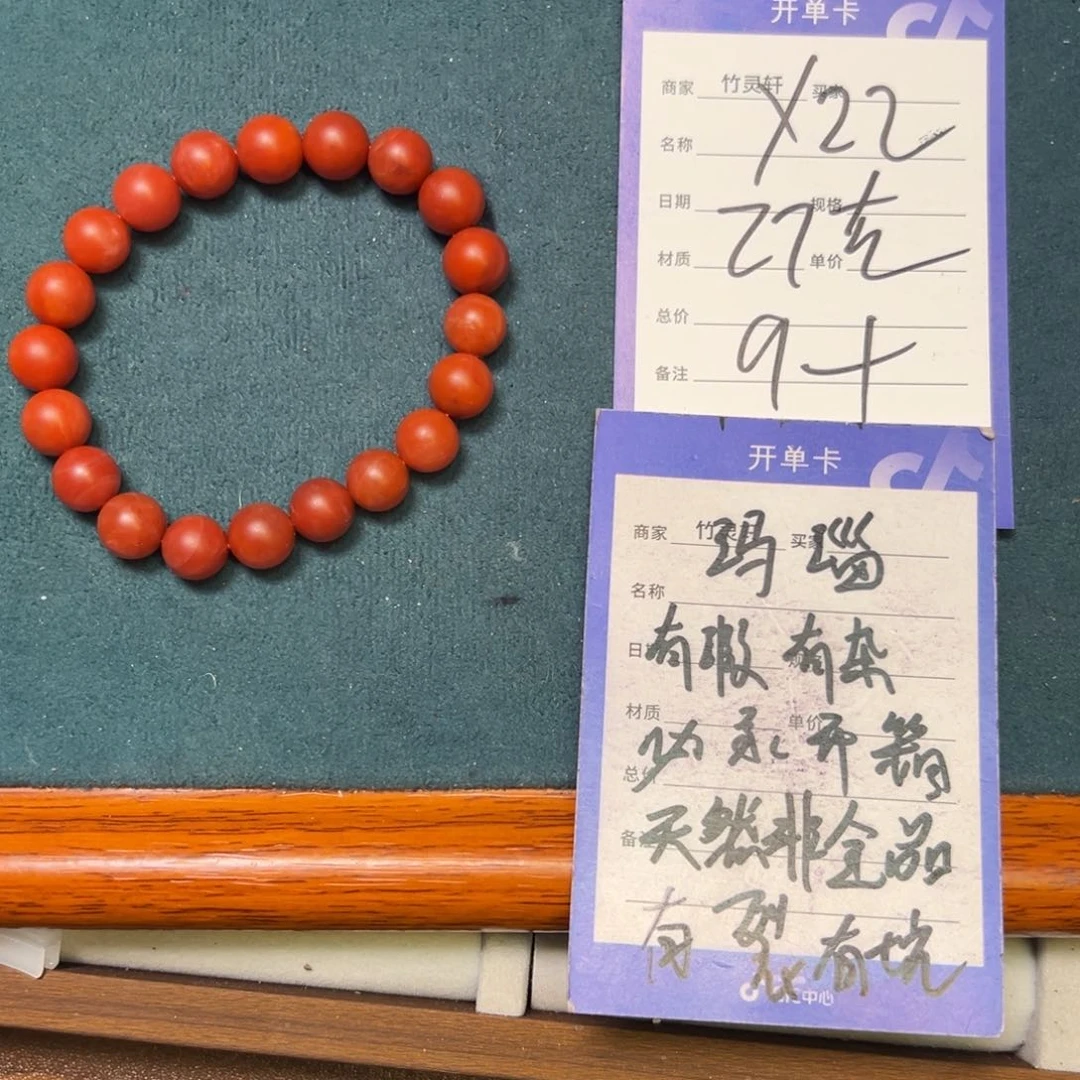 开单卡
商家 竹灵轩 买家
Y22
名称
日期 规格
27克
材质 单价
总价
9十
备注
开单卡
商家 竹灵轩 买家
玛瑙
名称
有瑕有杂
材质 单价
开箱
天然非全品
有裂有坑
中心